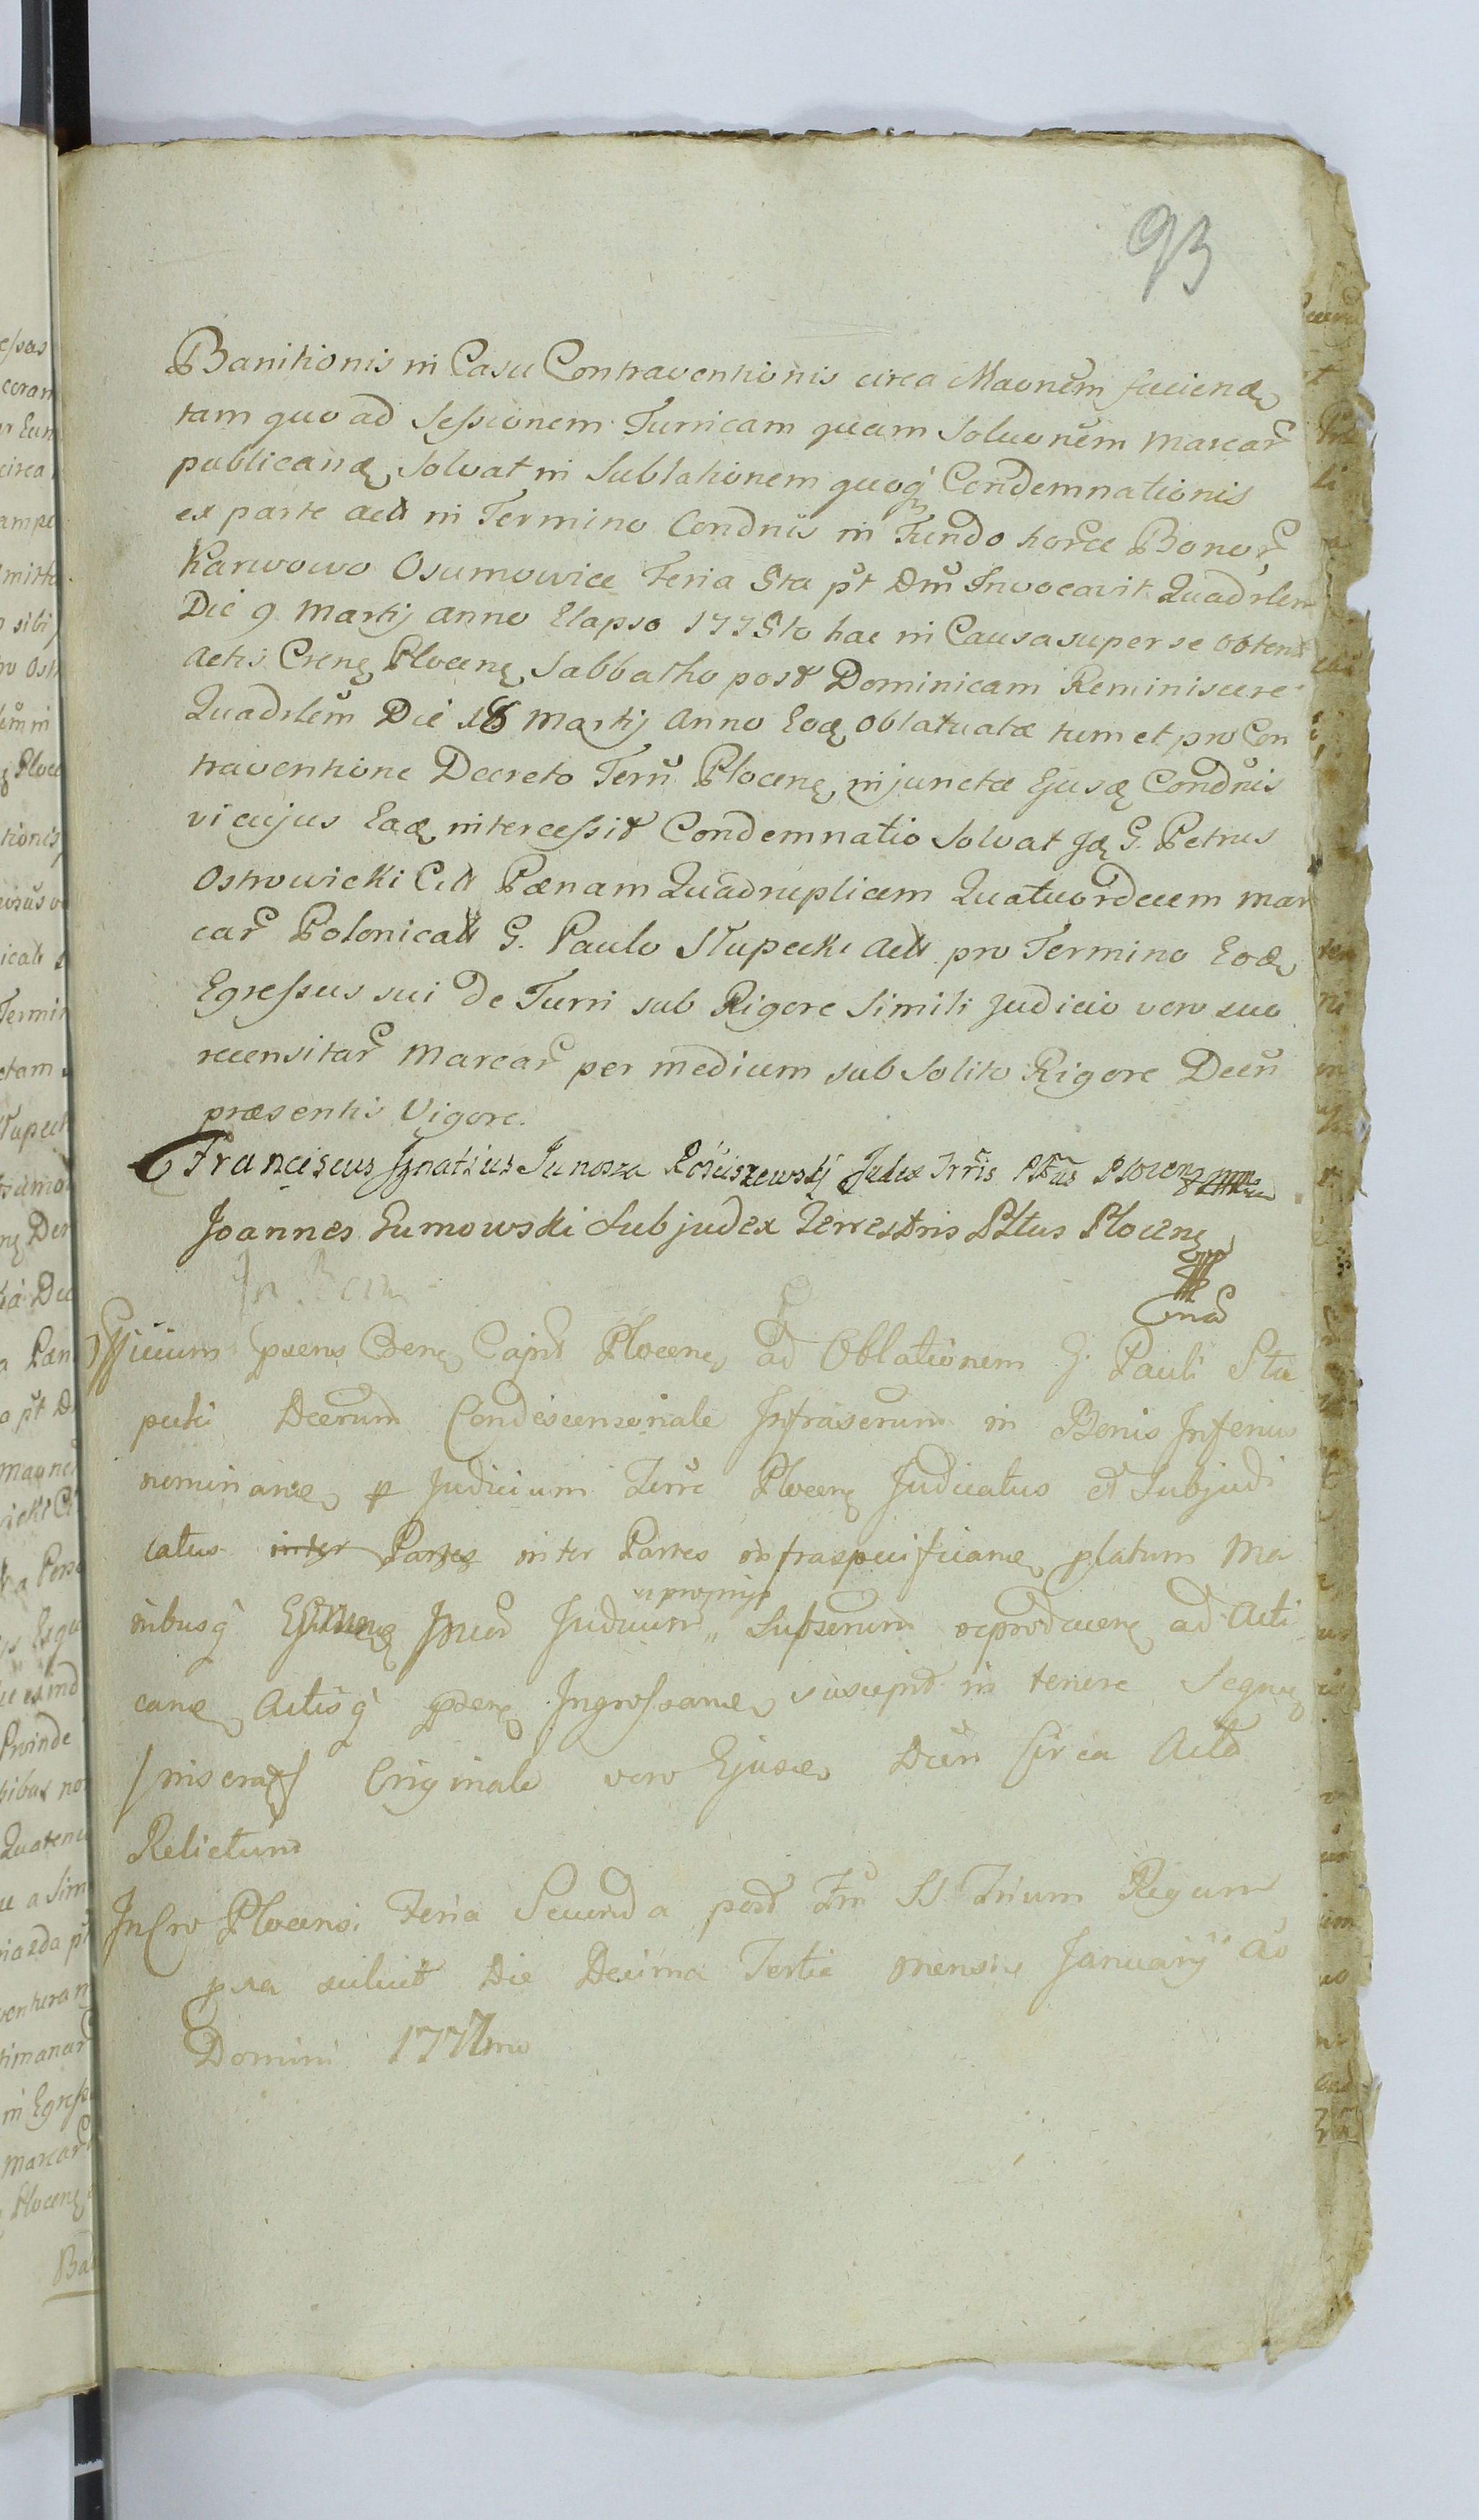 93
Banitionis in Casu Contraventionis circa Maonem faciend
tam quo ad Sessionem Turricam quam Soluonem marcar
publicand, Solvat in Sublationem quoq Condemnationis
ex parte act in Termino Condnis in Fundo horce Bonor
Karwowo Osumowice Feria 5ta pt Dm Invocavit Quadrlem
Die 9 Martij Anno Elapso 1775to hac in Causa super se obtent
Actis Cren Plocen Sabbatho post Dominicam Reminiscere
Quadrlem Die 18 Martij Anno Eod oblatuatæ tum et pro Con
traventione Decreto Terr Plocen injunctæ Ejusd Condnis
vi cujus Ead intercessit Condemnatio Solvat Jd G. Petrus
Ostrowicki Citt Pœnam Quadruplicem Quatuordecem mar
car Polonicall G. Paulo Słupecki Act pro Termino Eod
Egressus sui de Turri sub Rigore Simili Judicio vero suo
recensitar Marcar per medium sub Solito Rigore Decr
præsentis Vigore.
Franciscus Ignatius Junosza Rościszewskj Judex Trris Pltus Plocen mp
Joannes Zumowski Subjudex Terrestris Pltus Plocen
mp
In Bon
Officium psens Cren Capit Plocen ad Oblationem G. Pauli Słu
pecki Decrum Condescensionale Infrascrum in Bonis Inferius
nominand p Judicium Terre Plocen Judicatus et Subjudi
catus inter Partes inter Partes infraspecificand platum Ma
nibusq Judicium Subscrum reproducen ad Acti
vi propnijs
cand Actisq psen Ingrossand suscepit in tenere Sequen
/inserat/ Originale vero Ejusd Decr circa Acta
Relictum
In Cro Plocensi Feria Secunda post Fm SS Trium Regum
pxa scilicet Die Decima Tertia mensis Januarij Ao
Domini 1777mo